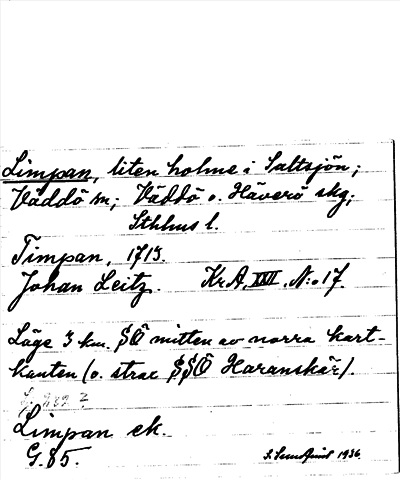 Limpan, liten holme i Saltsjön;
Väddö sn; Väddö o. Häverö skg;
Sthlms l.
Timpan, 1713.
Johan Leitz. Kr.A. XXVI. N:o 17.
Läge 3 km. SÖ mitten av norra kart-
kanten (o. strax SSÖ Haranskär).
Limpan ek.
G. 85. 1936